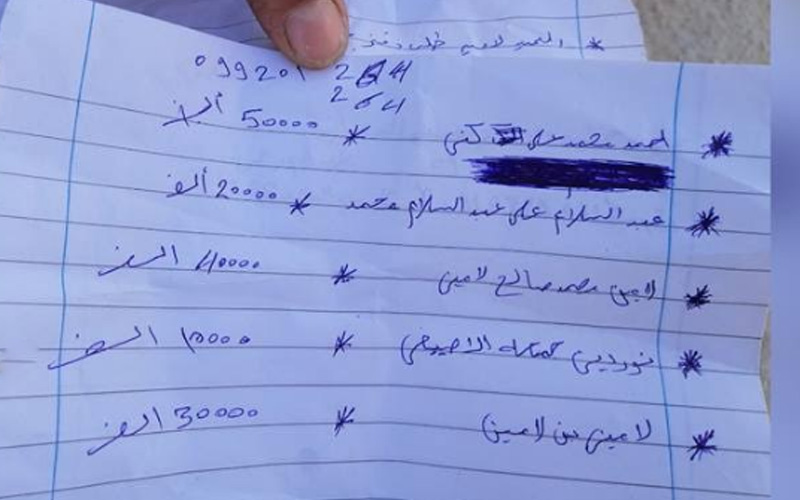 * السيد لامين
099201 264
264
* احمد محمد علي كني * 50000 ألف
* عبد السلام علي عبد السلام محمد * 20000 ألف
* لامين محمد صالح لامين * 40000 الف
* * 10000 الف
* لامين بن لامين * 30000 الف